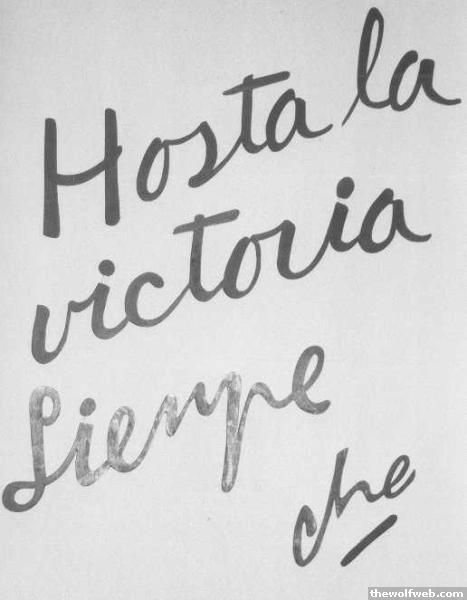 Hosta la
victoria
Sienpe
che
thewolfweb.com